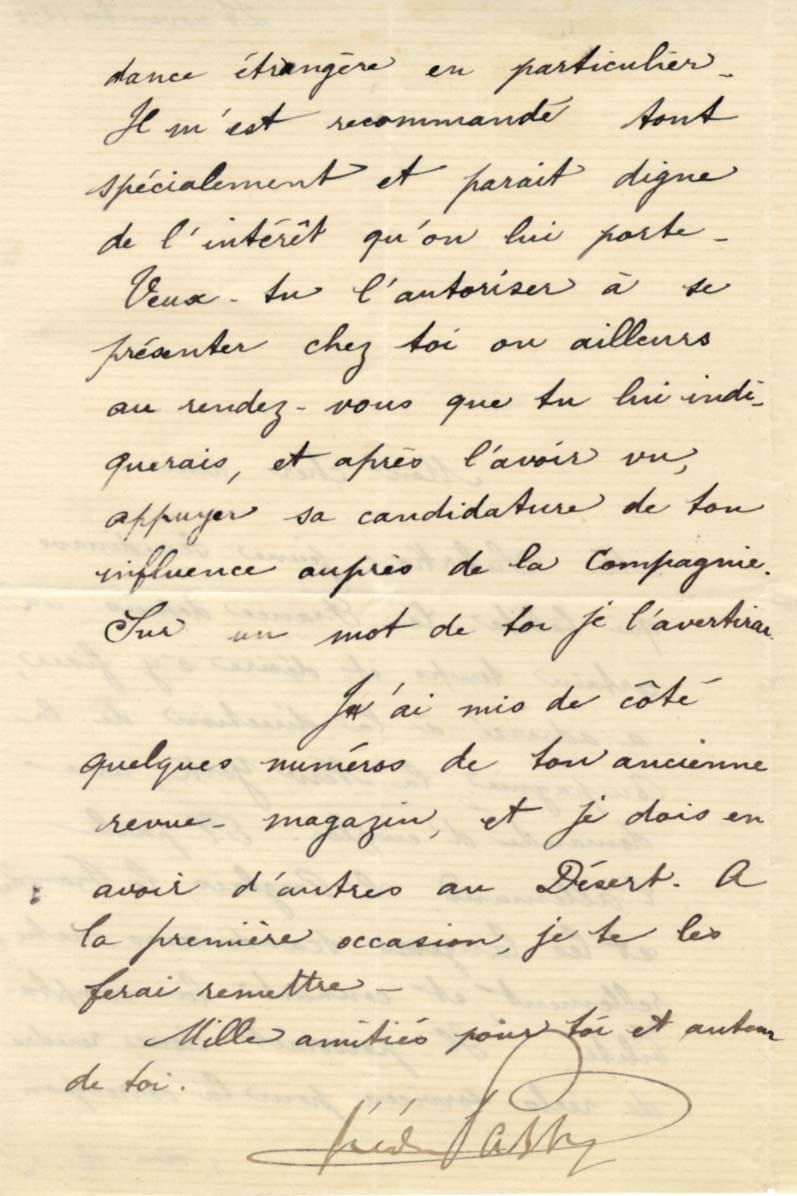 dance étrangère en particulier_
Il m'est recommandé tout
spécialement et parait digne
de l'intérêt qu'on lui porte_
Veux-tu l'autoriser à se
présenter chez toi ou ailleurs
au rendez-vous que tu lui indi-
querais, et après l'avoir vu,
appuyer sa candidature de ton
influence auprès de la Compagnie.
Sur un mot de toi je l'avertirai.
J'ai mis de côté
quelques numéros de ton ancienne
revue-magazin, et je dois en
avoir d'autres au Désert. A
la première occasion, je te les
ferai remettre_
Mille amitiés pour toi et autour
de toi.